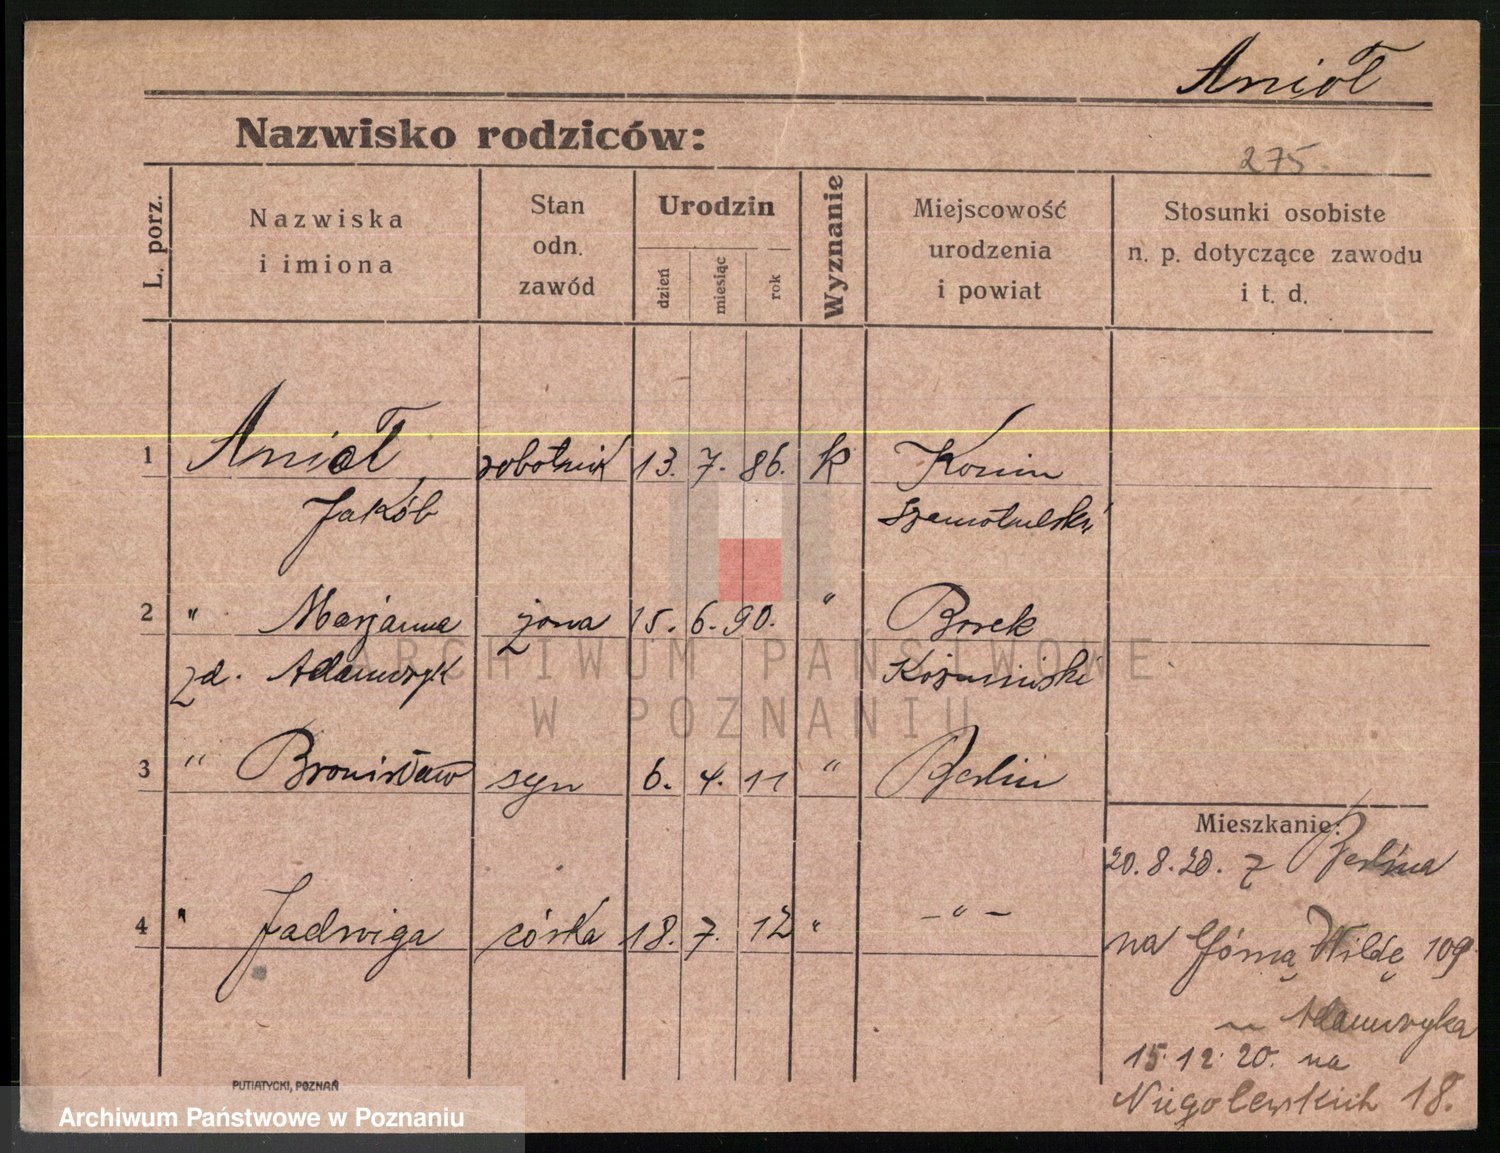 Anioł
Nazwisko rodziców:
275.
L. porz.
Nazwiska
i imiona
Stan
odn.
zawód
Urodzin
dzień
miesiąc
rok
Wyznanie
Miejscowość
urodzenia
i powiat
Stosunki osobiste
n. p. dotyczące zawodu
i t. d.
1 Anioł robotnik 13. 7. 86. k
Jakób Szamotulski
2 " Marjanna żona 15. 6. 90. " Borek
zd. Adamczyk Koźmiński
3 " Bronisław syn 6. 4. 11 " Berlin
4 " Jadwiga córka 18. 7. 12 " — " —
Mieszkanie:
20. 8. 20. z Berlina
na Górną Wildę 109
u Adamczyka
15. 12. 20. na
Niegolewskich 18.
PUTIATYCKI, POZNAŃ
ARCHIWUM PAŃSTWOWE
W POZNANIU
Archiwum Państwowe w Poznaniu